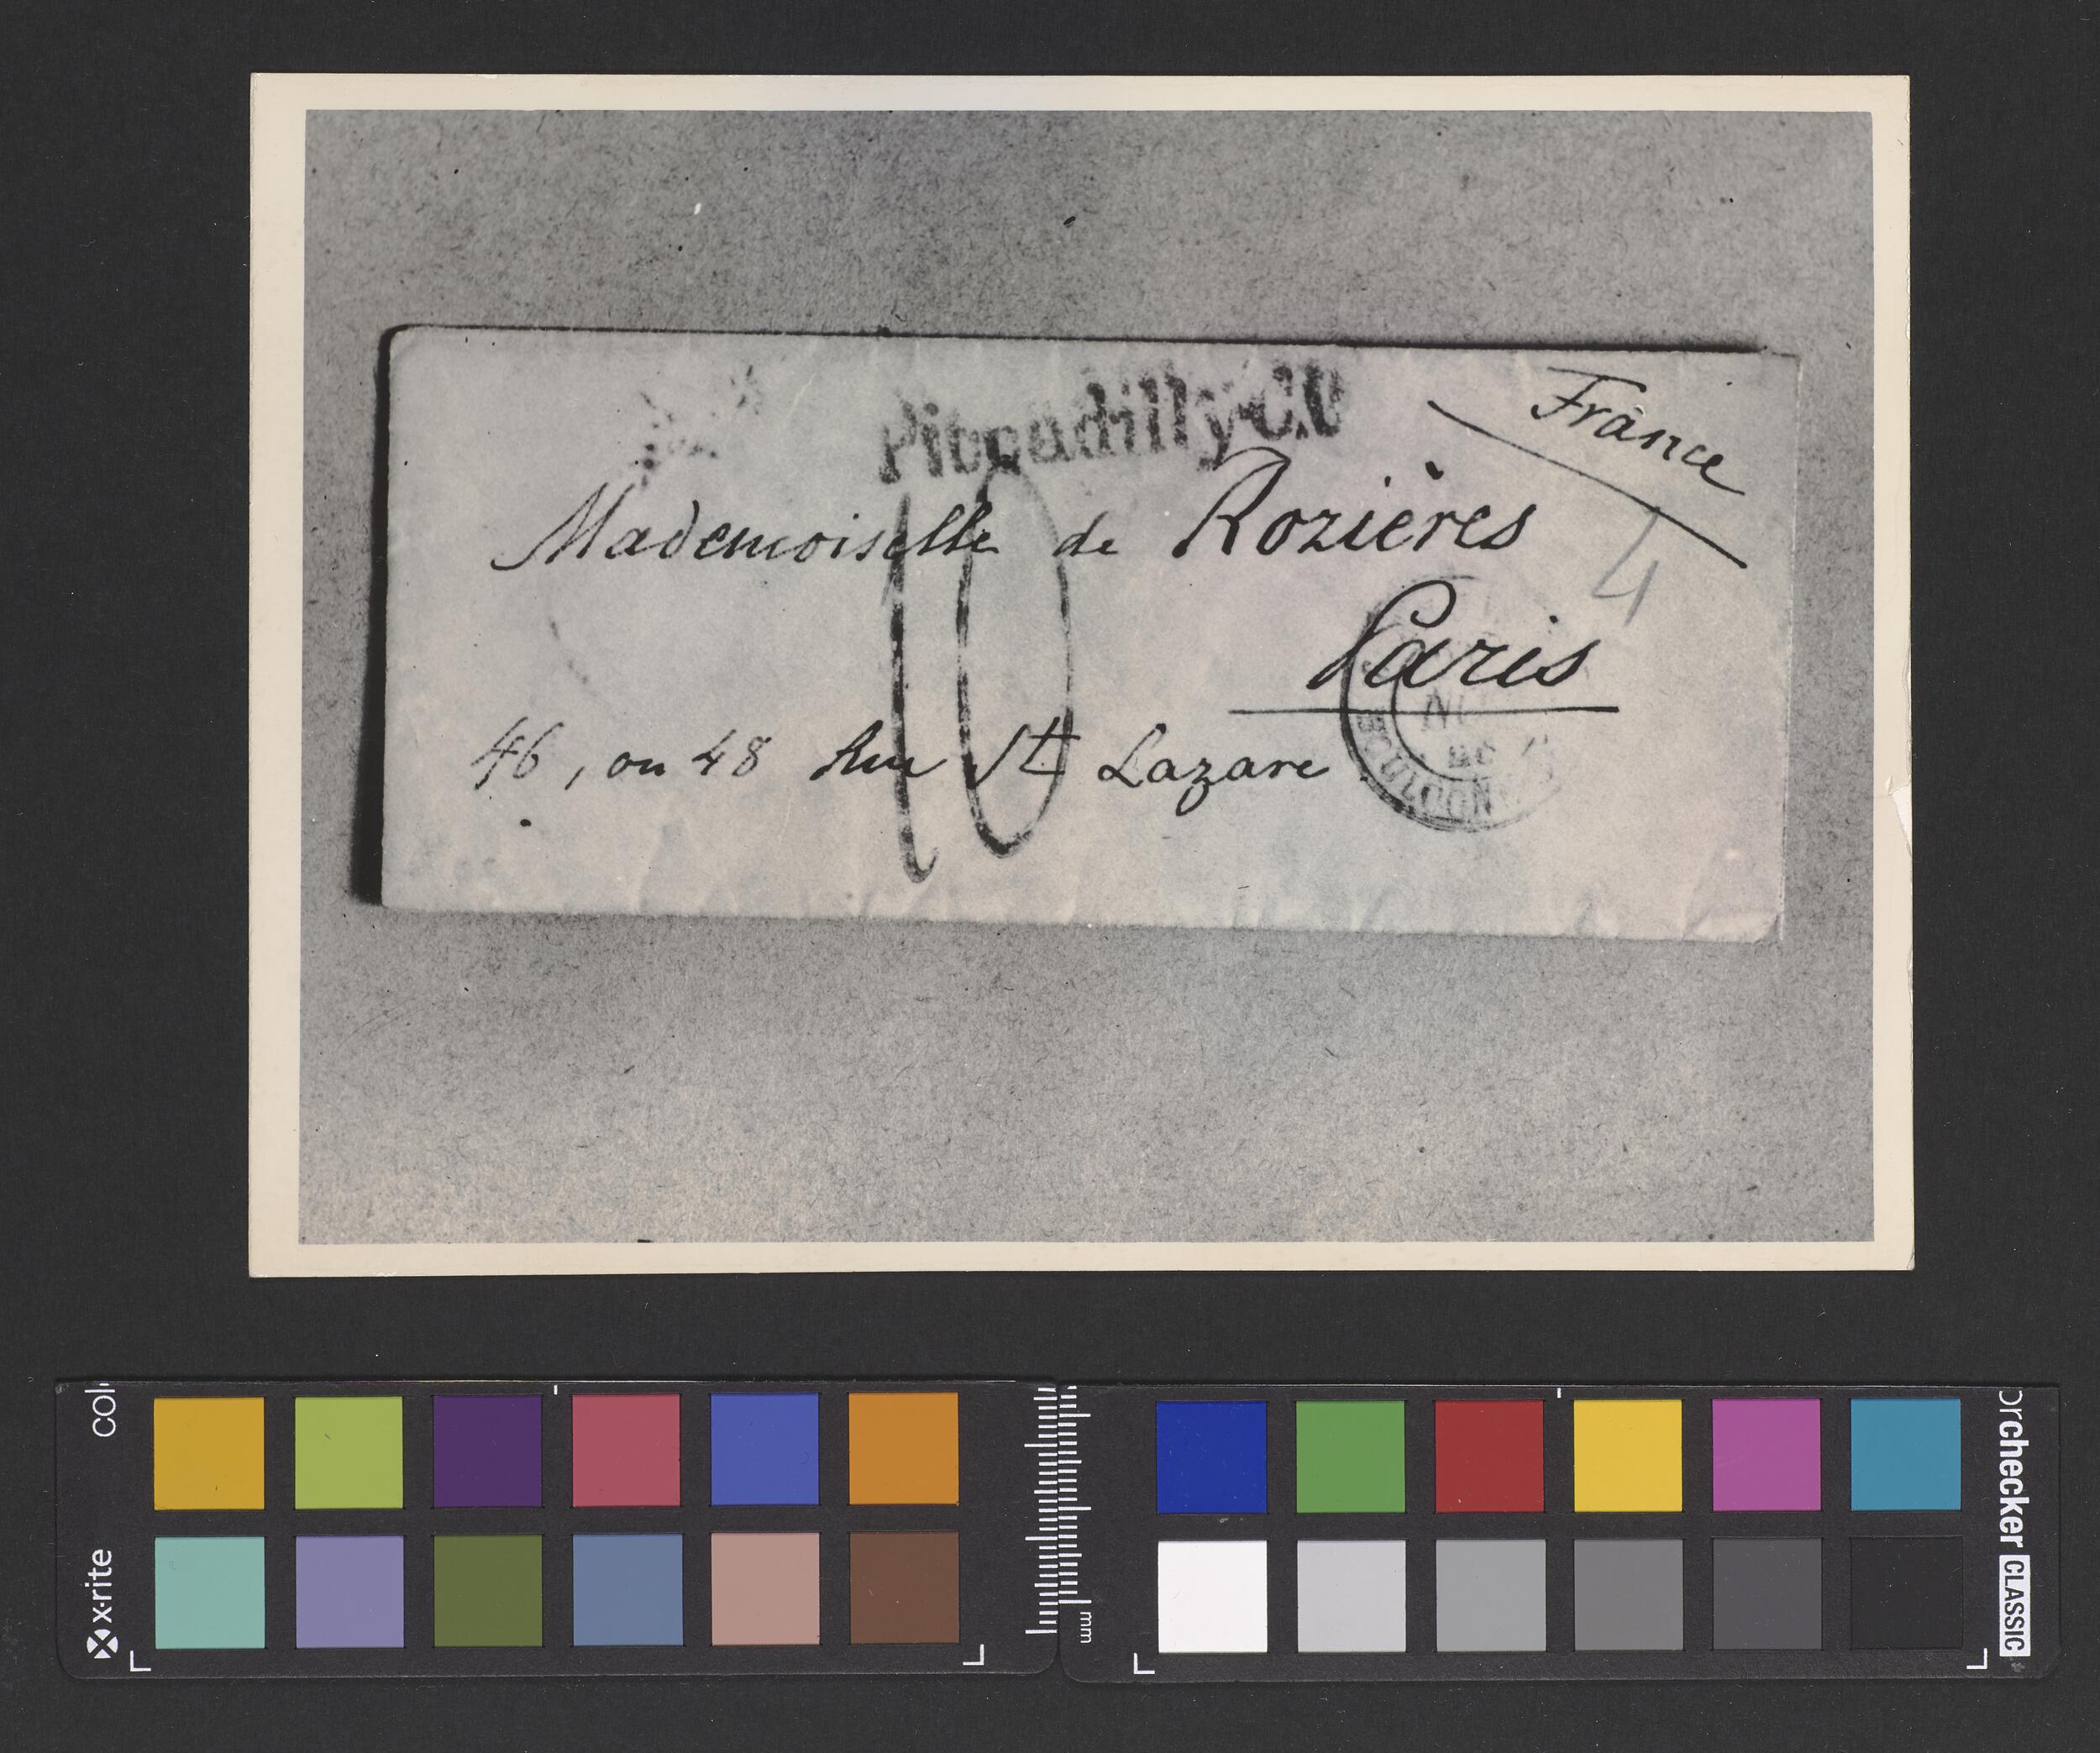 Piccadilly C.O
France
Mademoiselle de Rozières
4
Paris
10
46, ou 48 Rue St Lazare.
BOULOGNE
x·rite
mm
checker CLASSIC